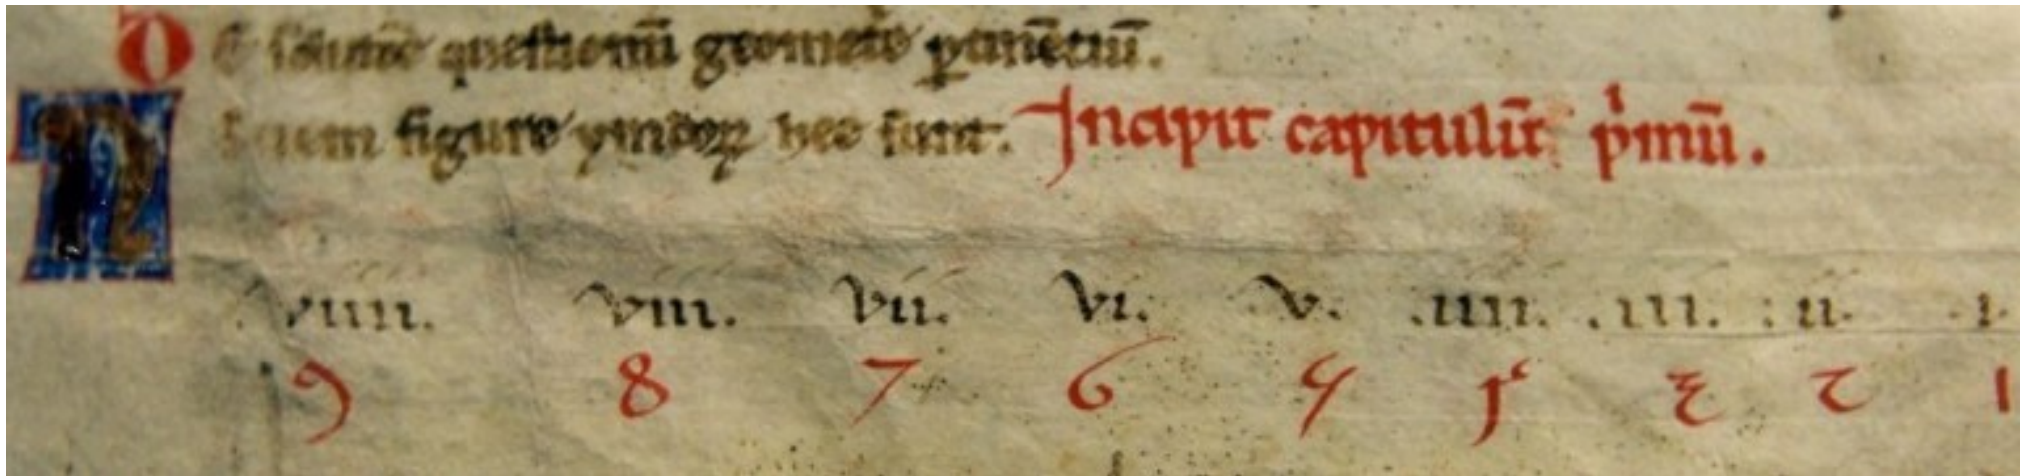 De solutioē questionū geometͥe ꝑtinētiū.
Nouem figure yndoꝝ hee sunt. Incipit capitulū pͥmū.
viiii. viii. vii. vi. v. .iiii. .iii. : ii. .i.
9 8 7 6 5 4 3 2 1